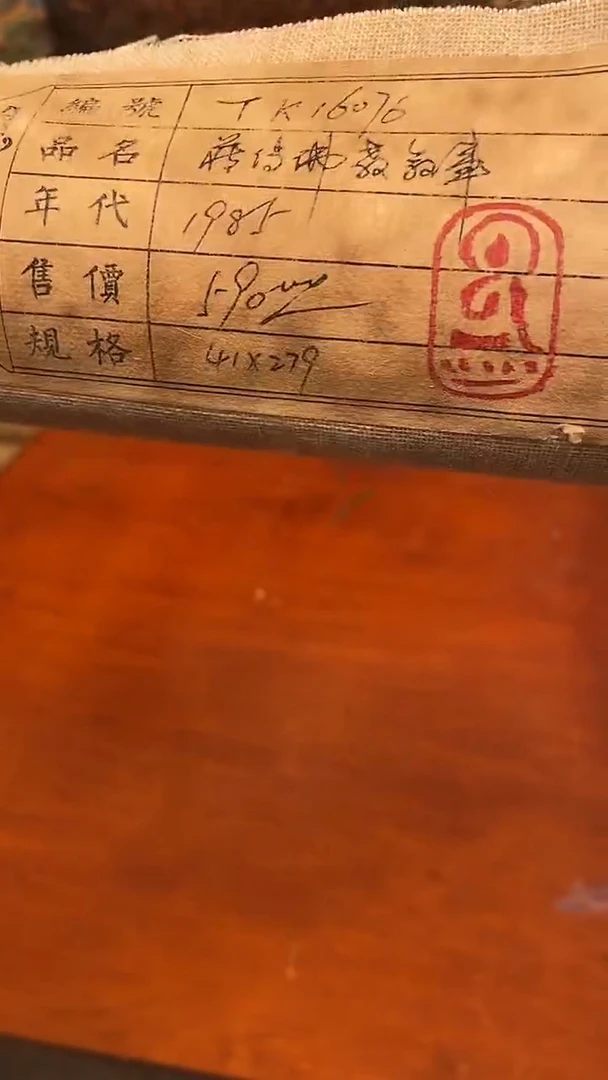 編號 TK16076
品名 藏傳佛教
年代 1985
售價
規格 41x279